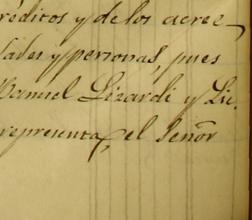 réditos y de los acree
tades y personas, pues
Manuel Lizardi y Lic.
representa, el Señor